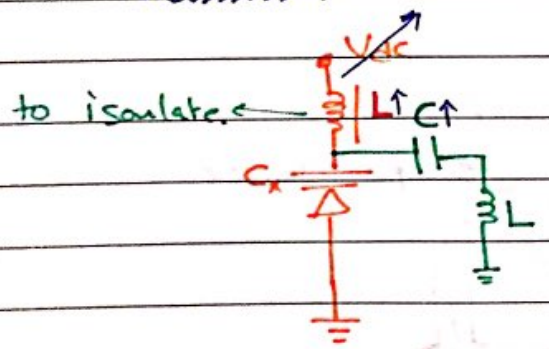 Vdc
to isoulate. L↑ C↑
Cx
L